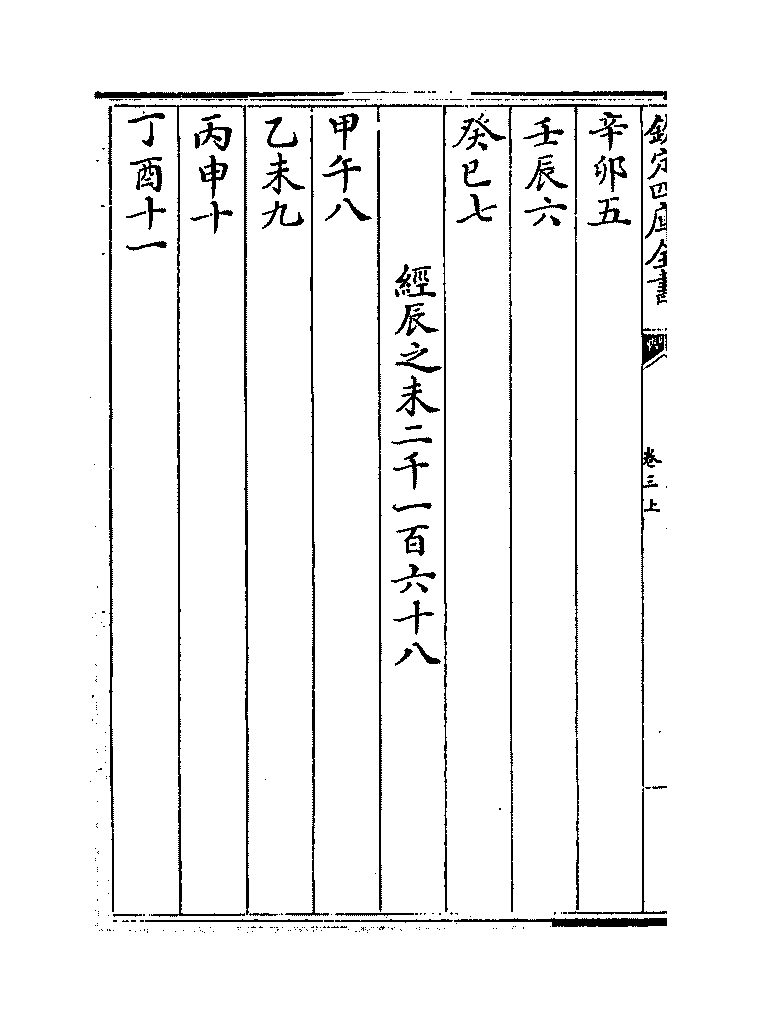 欽定四庫全書
卷三上
辛卯五
壬辰六
癸巳七
經辰之未二千一百六十八
甲午八
乙未九
丙申十
丁酉十一